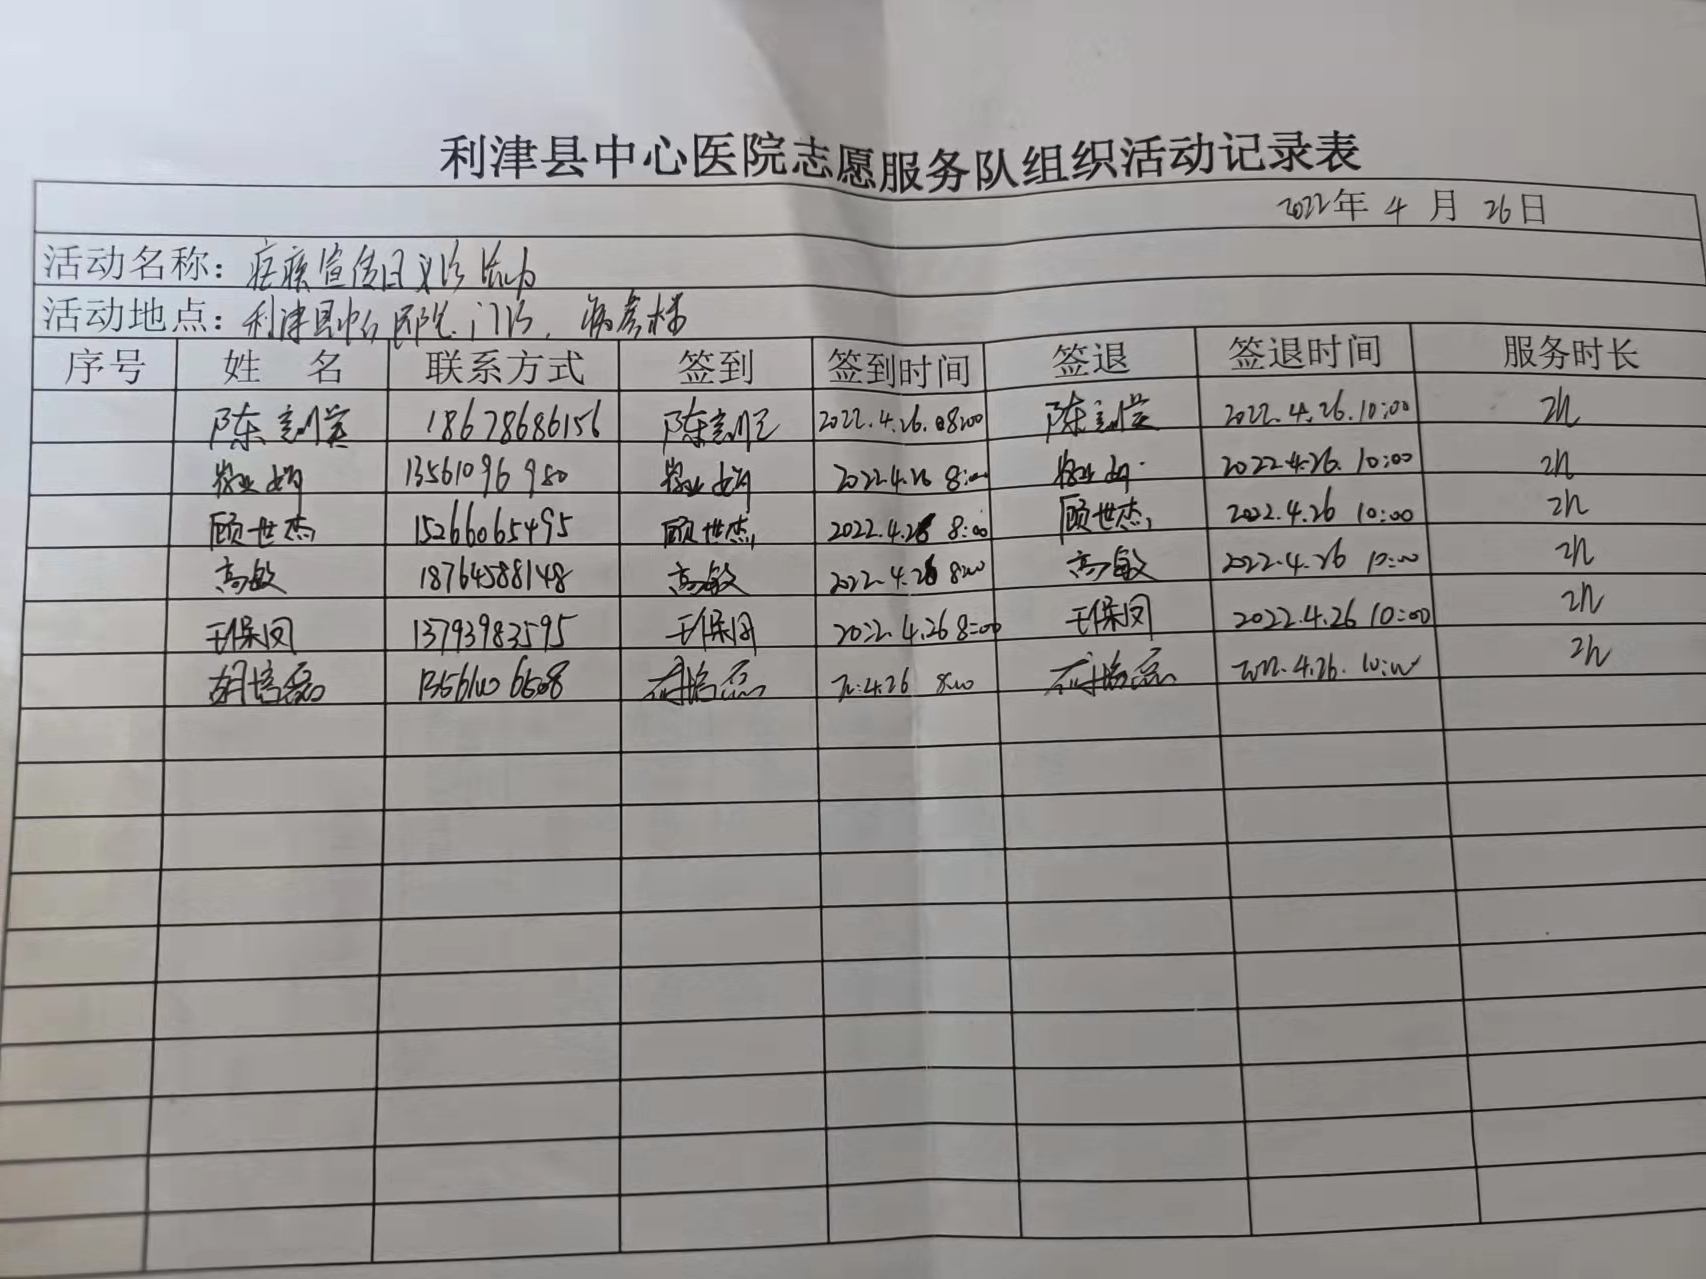 利津县中心医院志愿服务队组织活动记录表
2022年 4 月 26日
活动名称：疟疾宣传日义诊活动
活动地点：利津县中心医院门诊、病房楼
序号 姓 名 联系方式 签到 签到时间 签退 签退时间 服务时长
陈 18678686156 陈 2022.4.26.08:00 陈 2022.4.26.10:00 2h
1356109 2022.4.26 8:00 2022.4.26. 10:00 2h
顾世杰 15266065495 顾世杰 2022.4.26 8:00 顾世杰 2022.4.26 10:00 2h
高敏 18764588148 高敏 2022.4.26 8:00 高敏 2022.4.26 10:00 2h
王保凤 13793983595 王保凤 2022.4.26 8:00 王保凤 2022.4.26 10:00 2h
胡培磊 胡培磊 4.26 8:00 胡培磊 2022.4.26. 10:00 2h